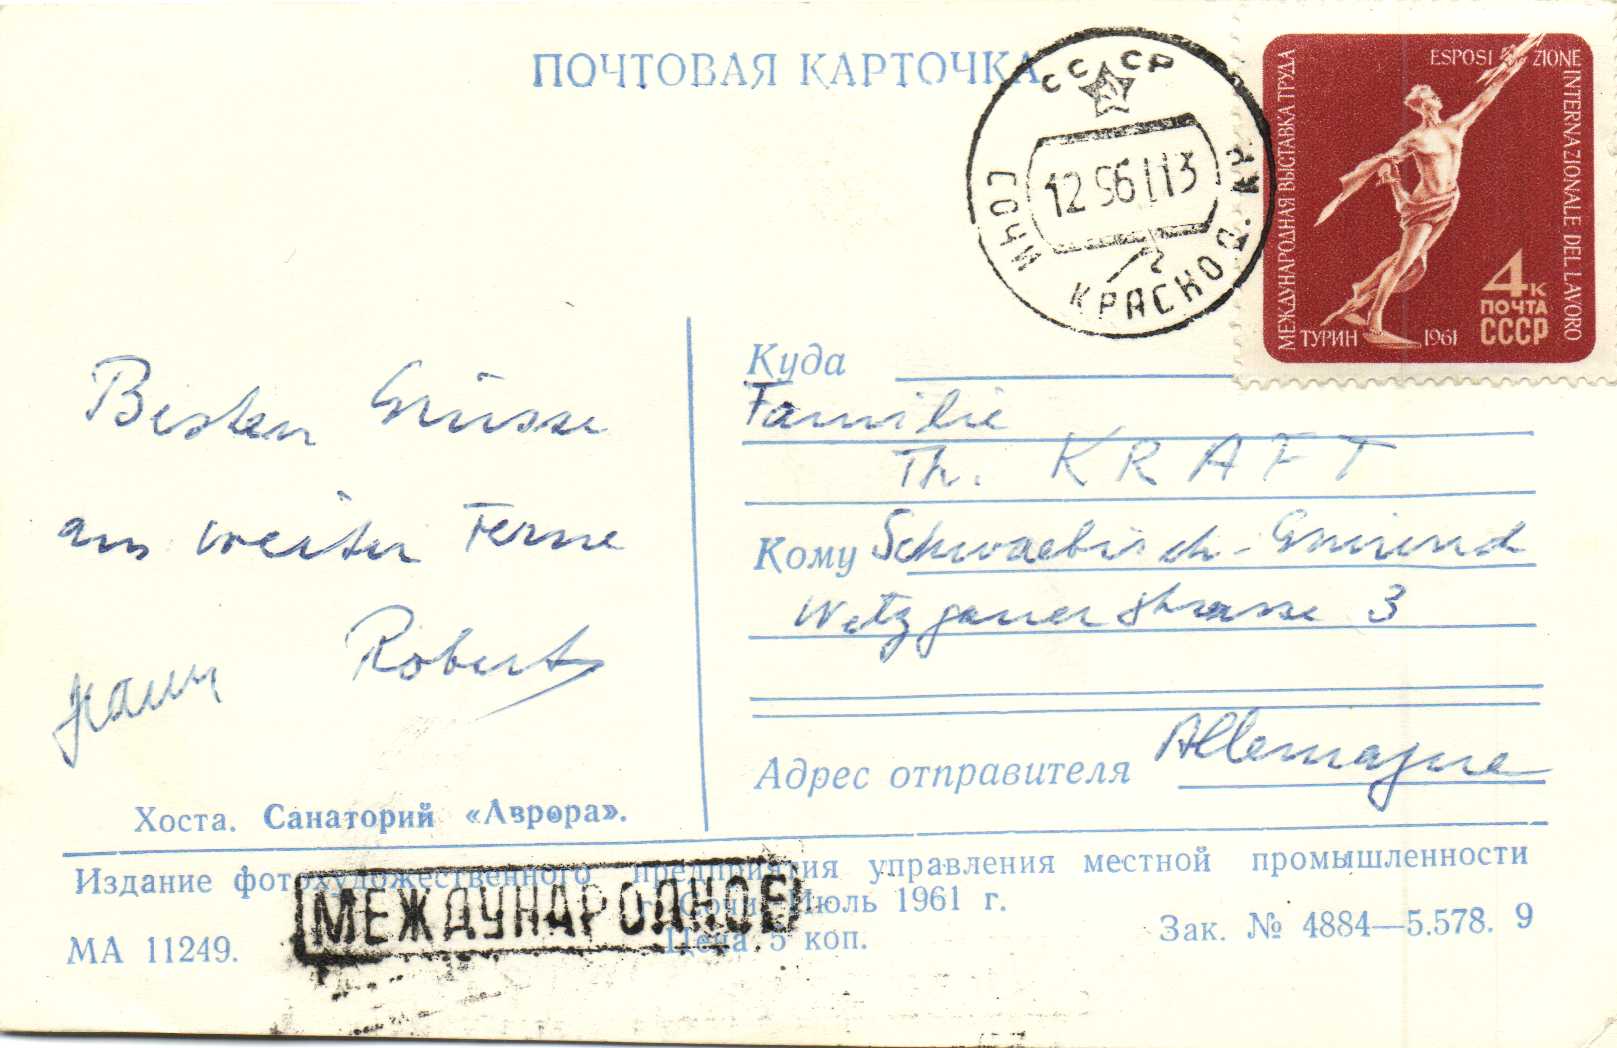 ПОЧТОВАЯ КАРТОЧКА
СССР
12 9 61 13
СОЧИ КРАСНОД. КР.
ESPOSIZIONE INTERNAZIONALE DEL LAVORO
МЕЖДУНАРОДНАЯ ВЫСТАВКА ТРУДА
4к
ПОЧТА
СССР
ТУРИН 1961
Besten Grüsse
aus weiter Ferne
Robert
Хоста. Санаторий «Аврора».
Куда
Familie
Th. KRAFT
Кому Schwaebisch-Gmünd
Wetzgauerstrasse 3
Адрес отправителя Allemagne
Издание фотохудожественного предприятия управления местной промышленности
г. Сочи Июль 1961 г.
МА 11249.
Цена 5 коп.
Зак. № 4884—5.578. 9
МЕЖДУНАРОДНОЕ